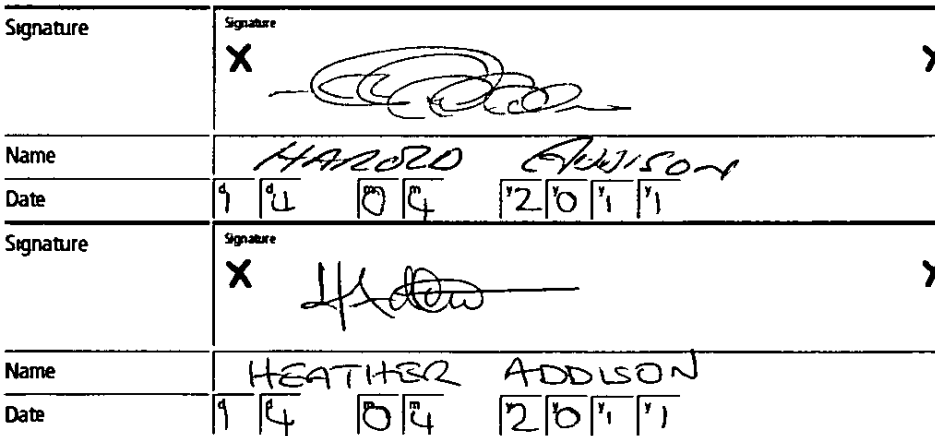 Signature Signature
X X
Name HAROLD ADDISON
Date d1 d4 m0 m4 y2 y0 y1 y1
Signature Signature
X HAddison X
Name HEATHER ADDISON
Date d1 d4 m0 m4 y2 y0 y1 y1